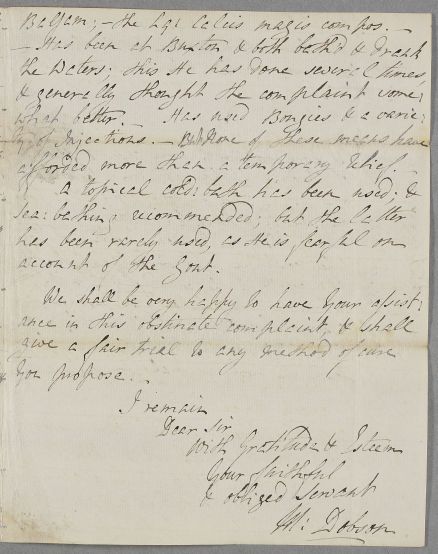 Balsam; – the Aq: Calcis magis compos. –
– Has been at Buxton & both bath'd & drank
the Waters; this He has done several times,
& generally thought the complaint some;
what better. – Has used Bougies & a varie;
ty of Injections. – But None of these means have
afforded more than a temporary relief. –
a topical cold: bath has been used; &
Sea: bathing recommended; but the latter
has been rarely used, as He is fearful on
account of the Gout.
We shall be very happy to have Your assist;
ance in this obstinate complaint, & shall
give a fair trial to any method of cure
You propose. –
I remain
Dear Sir
With Gratitude & Esteem
Your faithful
& obliged Servant
M: Dobson